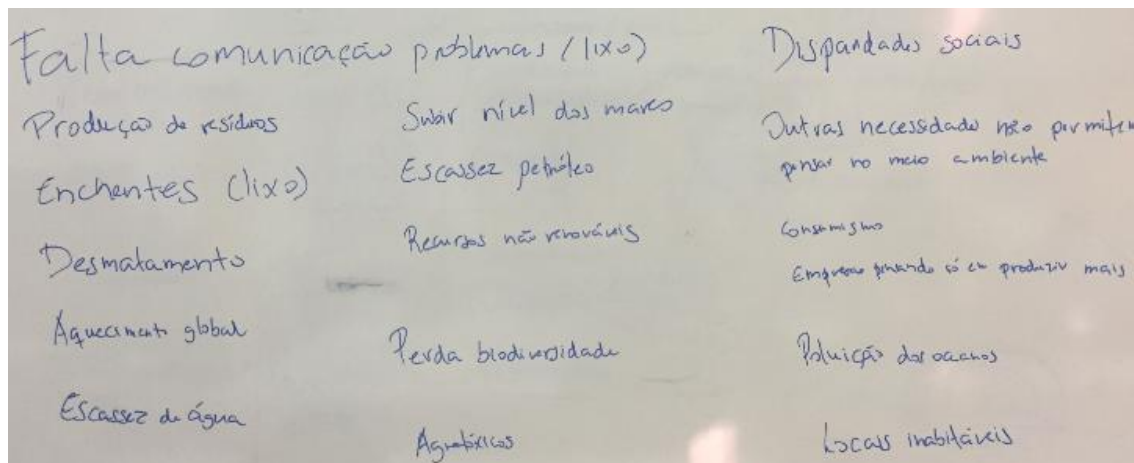 Falta comunicação problemas (lixo)
Produção de resíduos
Enchentes (lixo)
Desmatamento
Aquecimento global
Escassez de água
Subir nível dos mares
Escassez petróleo
Recursos não renováveis
Perda biodiversidade
Agrotóxicos
Disparidades sociais
Outras necessidade não permitem
pensar no meio ambiente
Consumismo
Empresas pensando só em produzir mais
Poluição dos oceanos
Locais inabitáveis